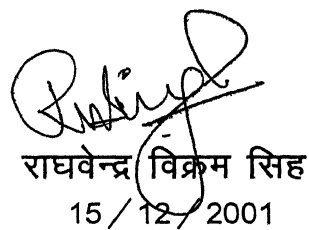 राघवेन्द्र विक्रम सिह
15 / 12 / 2001